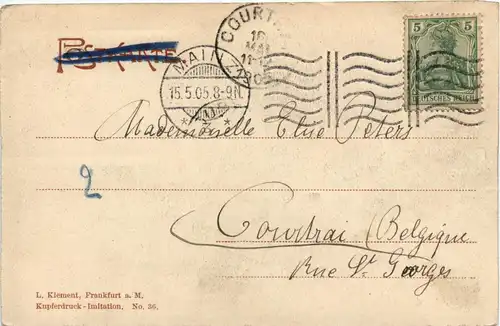 Postkarte
COURTRAI
16
MAI
11-
1905
5 5
DEUTSCHES REICH
MAINZ
15.5.05.8-9N.
Mademoiselle Elise Peters
2
Courtrai (Belgique
Rue St Georges
L. Klement, Frankfurt a. M.
Kupferdruck-Imitation. No. 36.